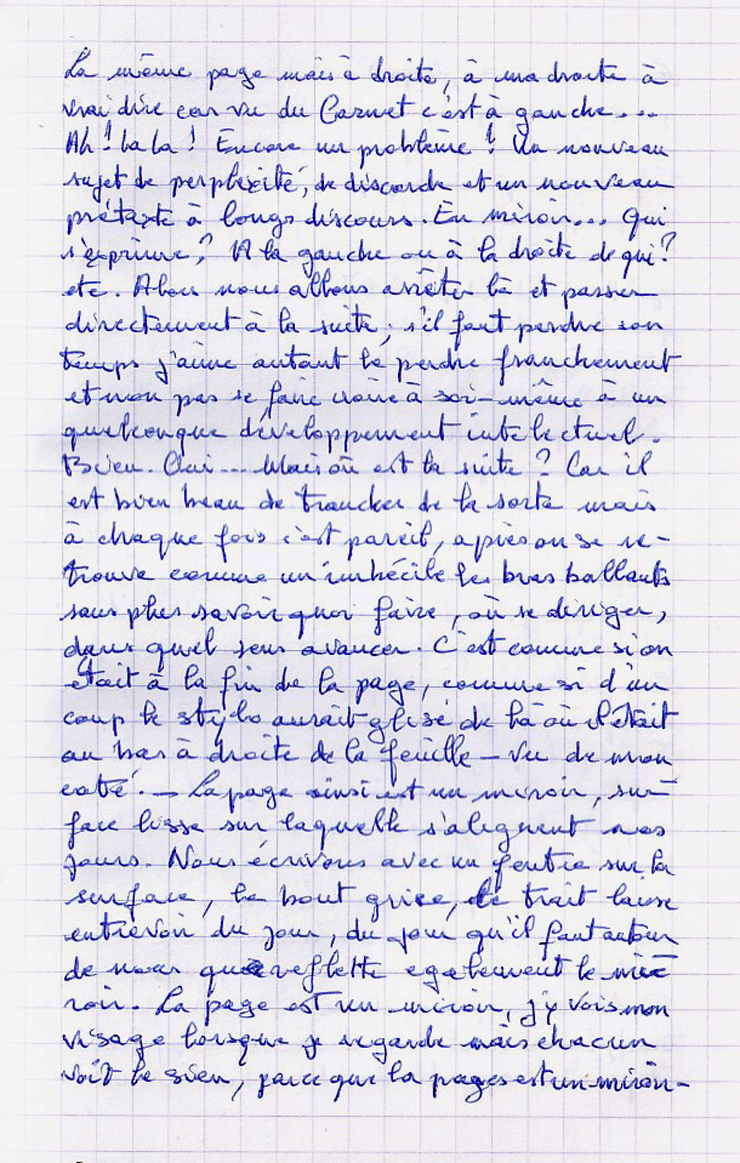 La même page mais à droite, à ma droite à
vrai dire car vu du Carnet c'est à gauche...
Ah ! la la ! Encore un problème ! Un nouveau
sujet de perplexité, de discorde et un nouveau
prétexte à longs discours. En miroir... Qui
s'exprime ? A la gauche ou à la droite de qui ?
etc. Alors nous allons arrêter là et passer
directement à la suite ; s'il faut perdre son
temps j'aime autant le perdre franchement
et non pas se faire croire à soi-même à un
quelconque développement intelectuel.
Bien. Oui... Mais où est la suite ? Car il
est bien beau de trancher de la sorte mais
à chaque fois c'est pareil, après on se re-
trouve comme un imbécile les bras ballants
sans plus savoir quoi faire, où se diriger,
dans quel sens avancer. C'est comme si on
était à la fin de la page, comme si d'un
coup le stylo aurait glissé de là où il était
au bas à droite de la feuille – vu de mon
coté. – La page ainsi est un miroir, sur-
face lisse sur laquelle s'alignent nos
jours. Nous écrivons avec un feutre sur la
surface, le bout grise, le trait laisse
entrevoir du jour, du jour qu'il faut autour
de nous que reflette egalement le mi-
roir. La page est un miroir, j'y vois mon
visage lorsque je regarde mais chacun
voit le sien, parce que la pages est un miroir-